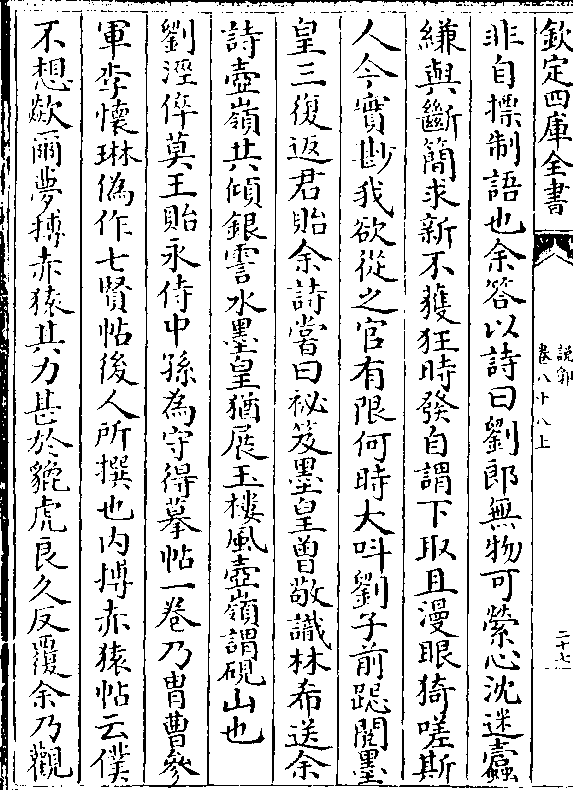 欽定四庫全書
說郛
卷八十八上
二十七
非自摽制語也余答以詩曰劉郎無物可縈心沈迷蠧
縑與斷簡求新不獲狂時發自謂下取且漫眼猗嗟斯
人今實尠我欲從之官有限何時大呌劉子前跽閲墨
皇三復返君貽余詩嘗曰祕笈墨皇曽敬識林希送余
詩壺嶺共傾銀霅水墨皇猶展玉樓風壺嶺謂硯山也
劉涇倅莫王貽永侍中孫為守得摹帖一卷乃胄曹參
軍李懐琳偽作七賢帖後人所撰也内搏赤猿帖云僕
不想歘爾夢搏赤猿其力甚於貔虎良久反覆余乃觀